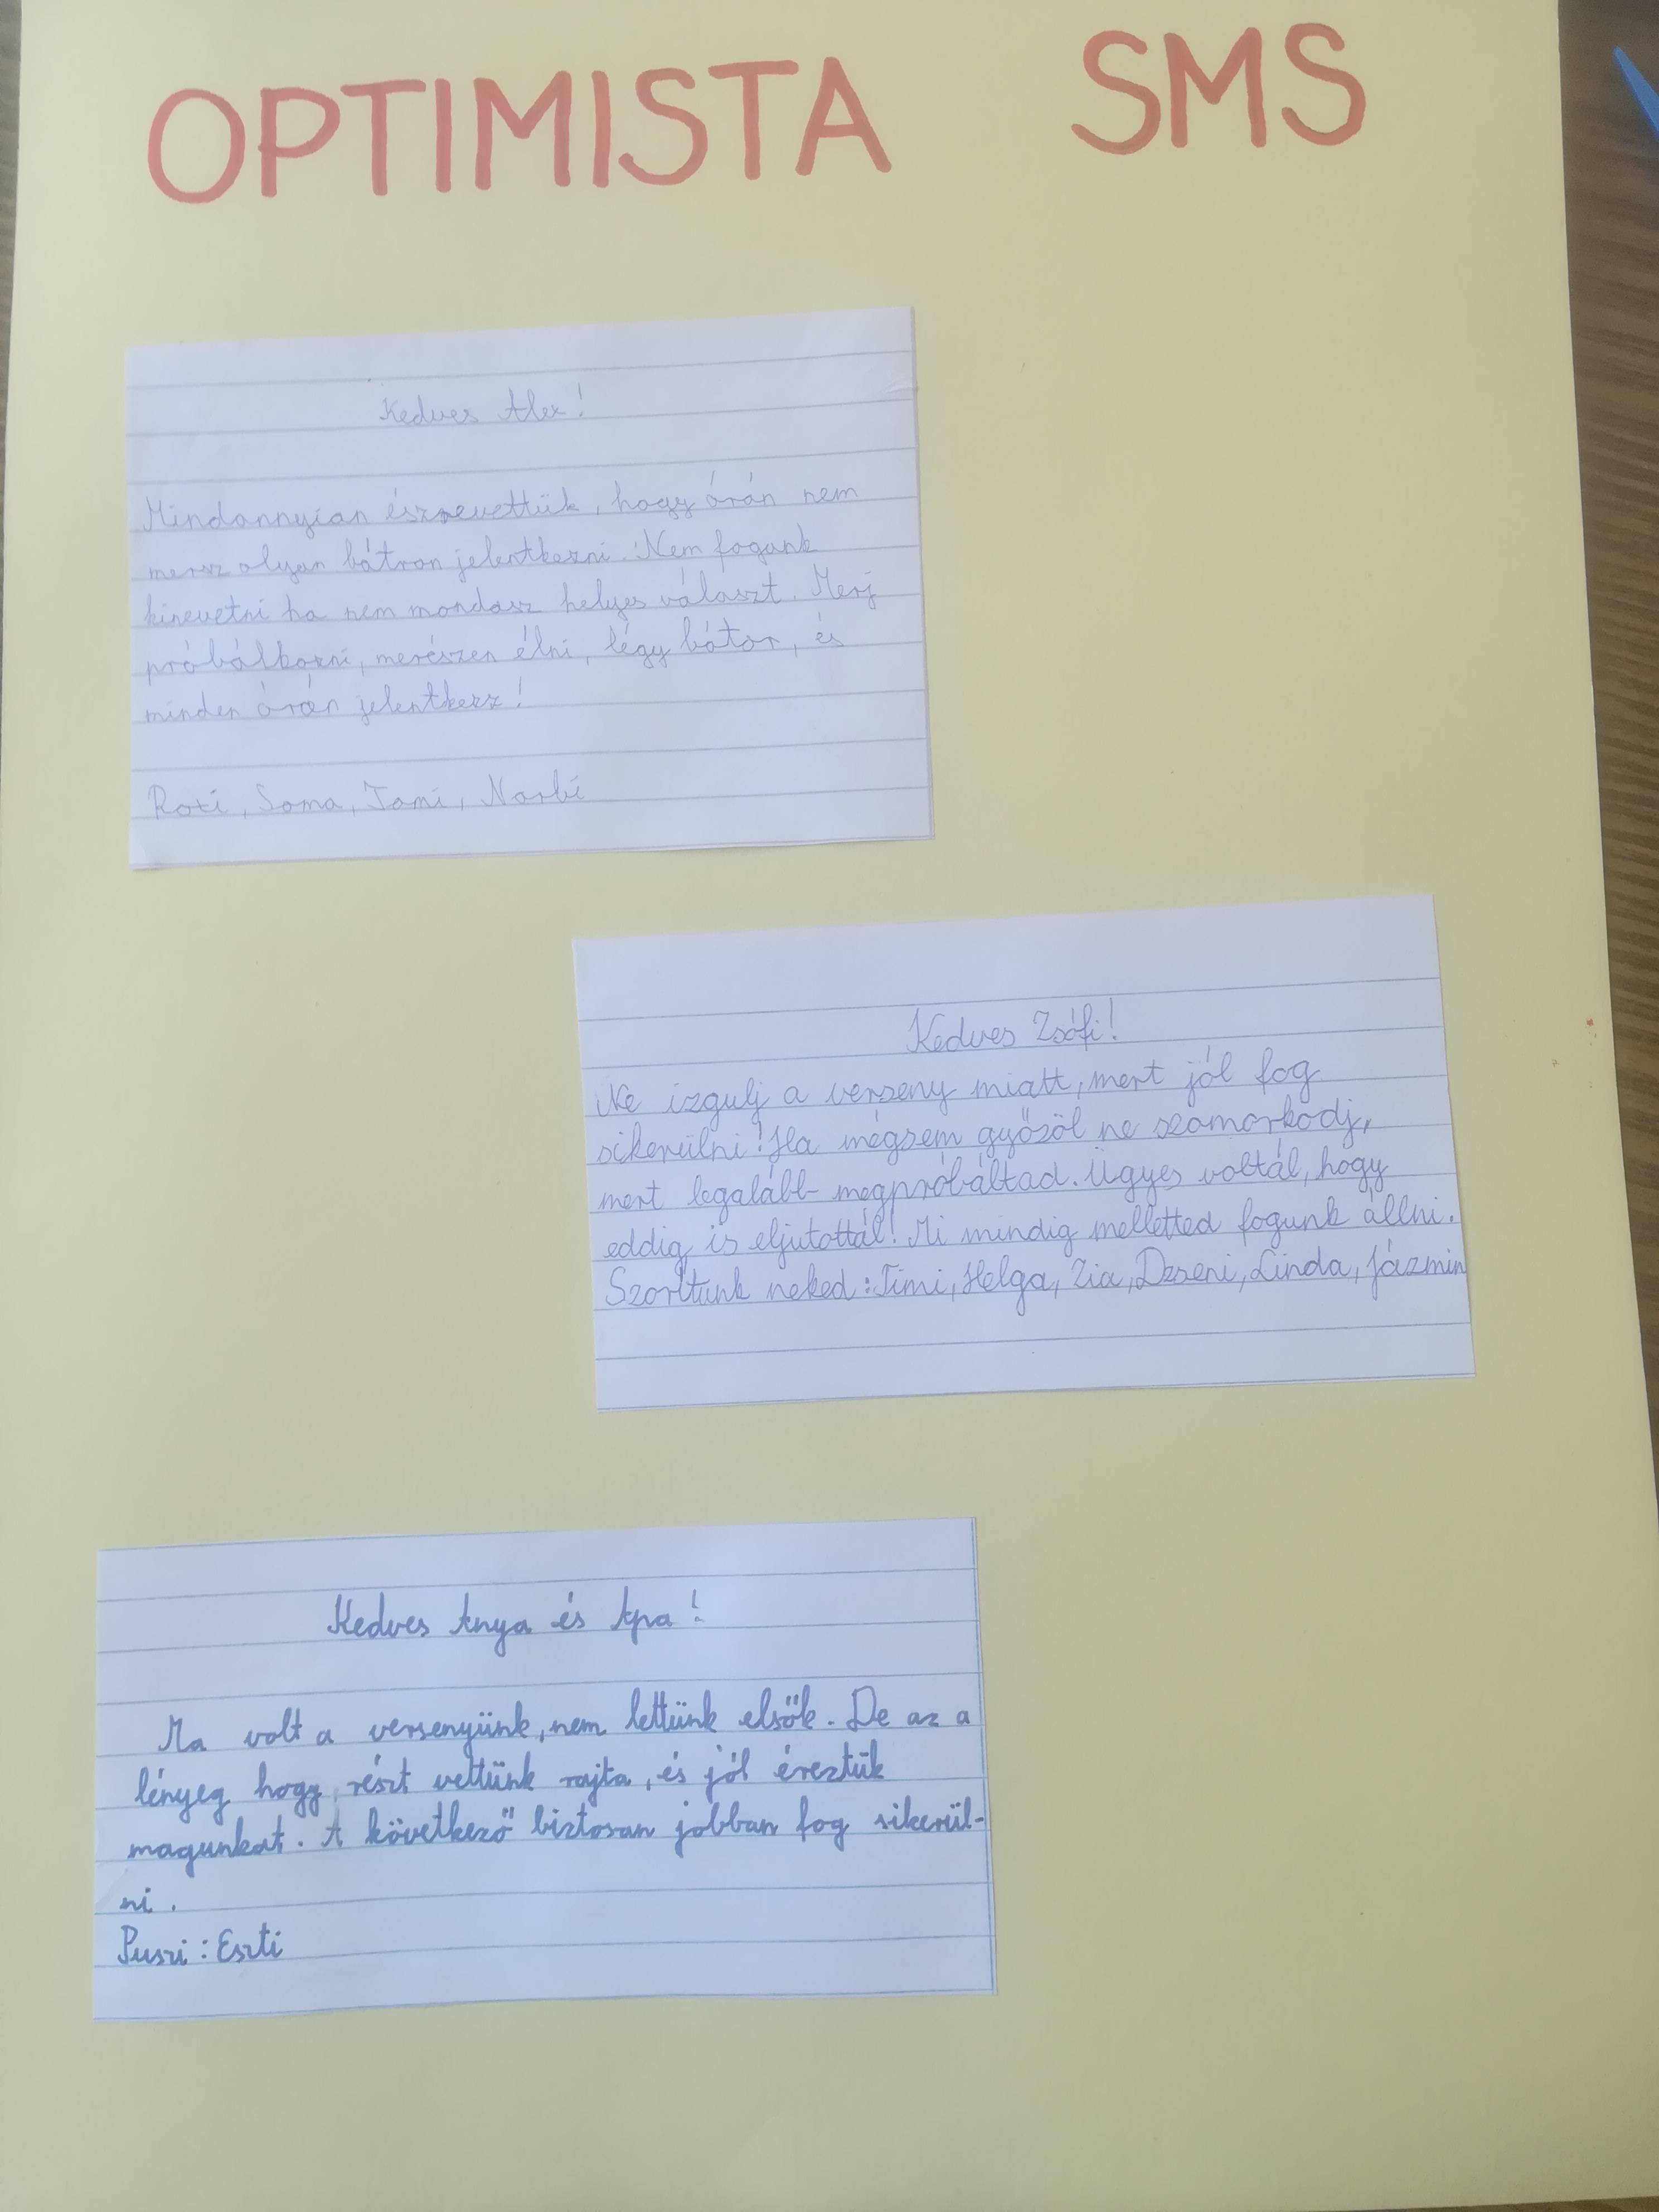 OPTIMISTA SMS
Kedves Alex!
Mindannyian észrevettük, hogy órán nem
mersz olyan bátran jelentkezni. Nem fogunk
kinevetni ha nem mondasz helyes választ. Merj
próbálkozni, merészen élni, légy bátor, és
minden órán jelentkezz!
Roxi, Soma, Tomi, Norbi
Kedves Zsófi!
Ne izgulj a verseny miatt, mert jól fog
sikerülni! Ha mégsem győzöl ne szomorkodj,
mert legalább megpróbáltad. Ügyes voltál, hogy
eddig is eljutottál! Mi mindig melletted fogunk állni.
Szorítunk neked: Timi, Helga, Zia, Dzseni, Linda, Jázmin
Kedves Anya és Apa!
Ma volt a versenyünk, nem lettünk elsők. De az a
lényeg hogy részt vettünk rajta, és jól éreztük
magunkat. A következő biztosan jobban fog sikerül-
ni.
Puszi: Eszti